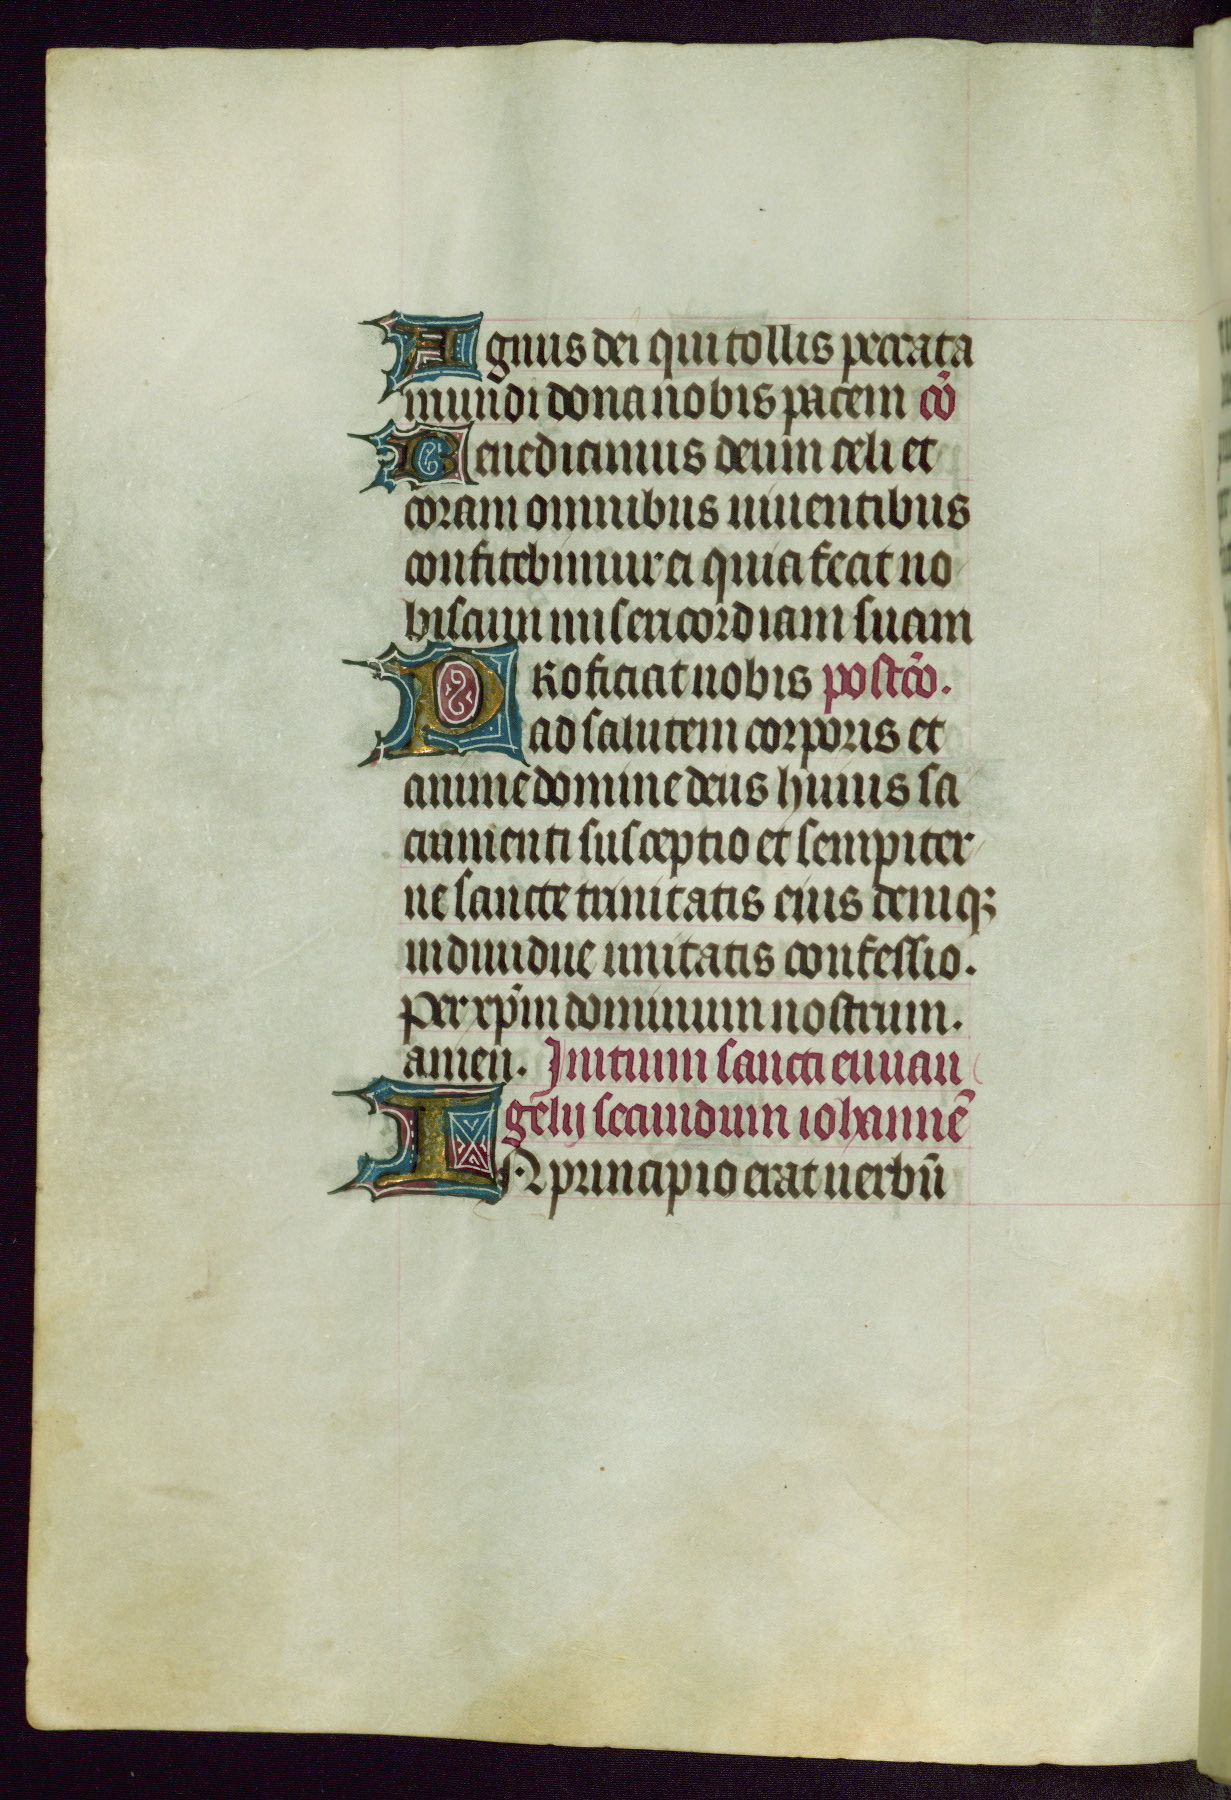 Agnus dei qui tollis peccata
mundi dona nobis pacem cō
Benedicimus deum celi et
coram omnibus uiuentibus
confitebimur ei quia fecit no
biscum misericordiam suam
PRoficiat nobis postcō.
ad salutem corporis et
anime domine deus huius sa
cramenti susceptio et sempiter
ne sancte trinitatis eius demq;
indiuidue unitatis confessio.
Per xp̄m dominum nostrum.
amen. Initium sancti euuan
gelij secundum iohannē
IN principio erat uerbū